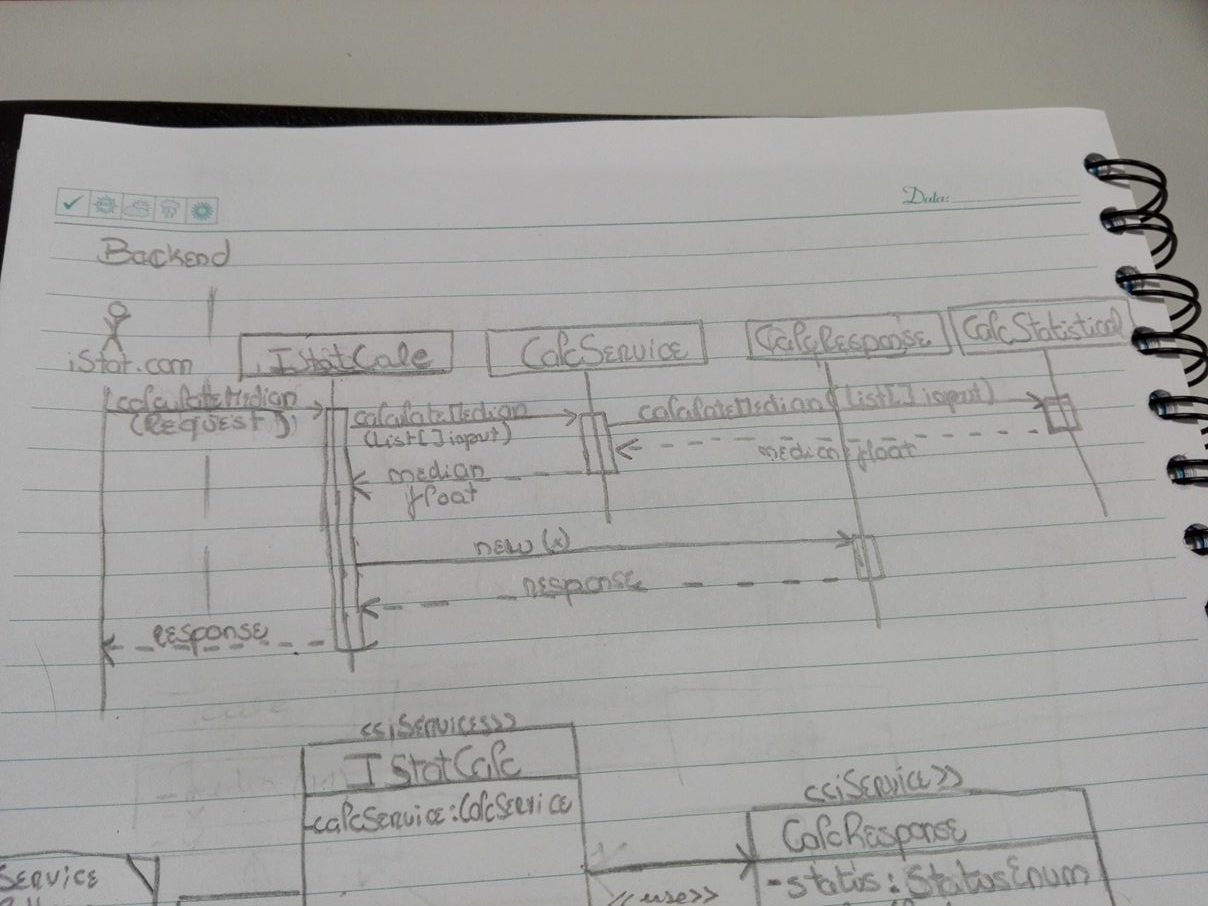 Data:
Backend
iStat.com
IStatCalc
CalcService
CalcResponse
CalcStatistical
calculateMedian
(REQUEST)
calculateMedian
(List[] input)
calculateMedian (List[] input)
median float
median
float
new (x)
response
response
<<iServices>>
IStatCalc
-calcService: CalcService
<<iService>>
CalcResponse
-status: StatusEnum
<<use>>
Service